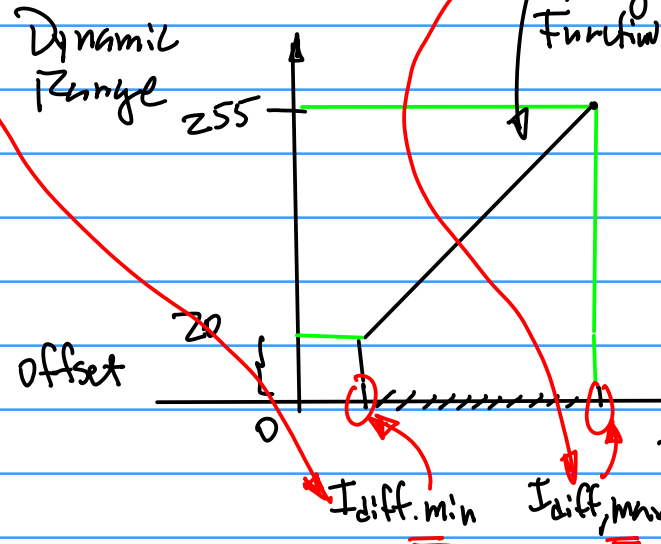 Dynamic
Range
Function
255
20
offset
0
Idiff.min
Idiff,max